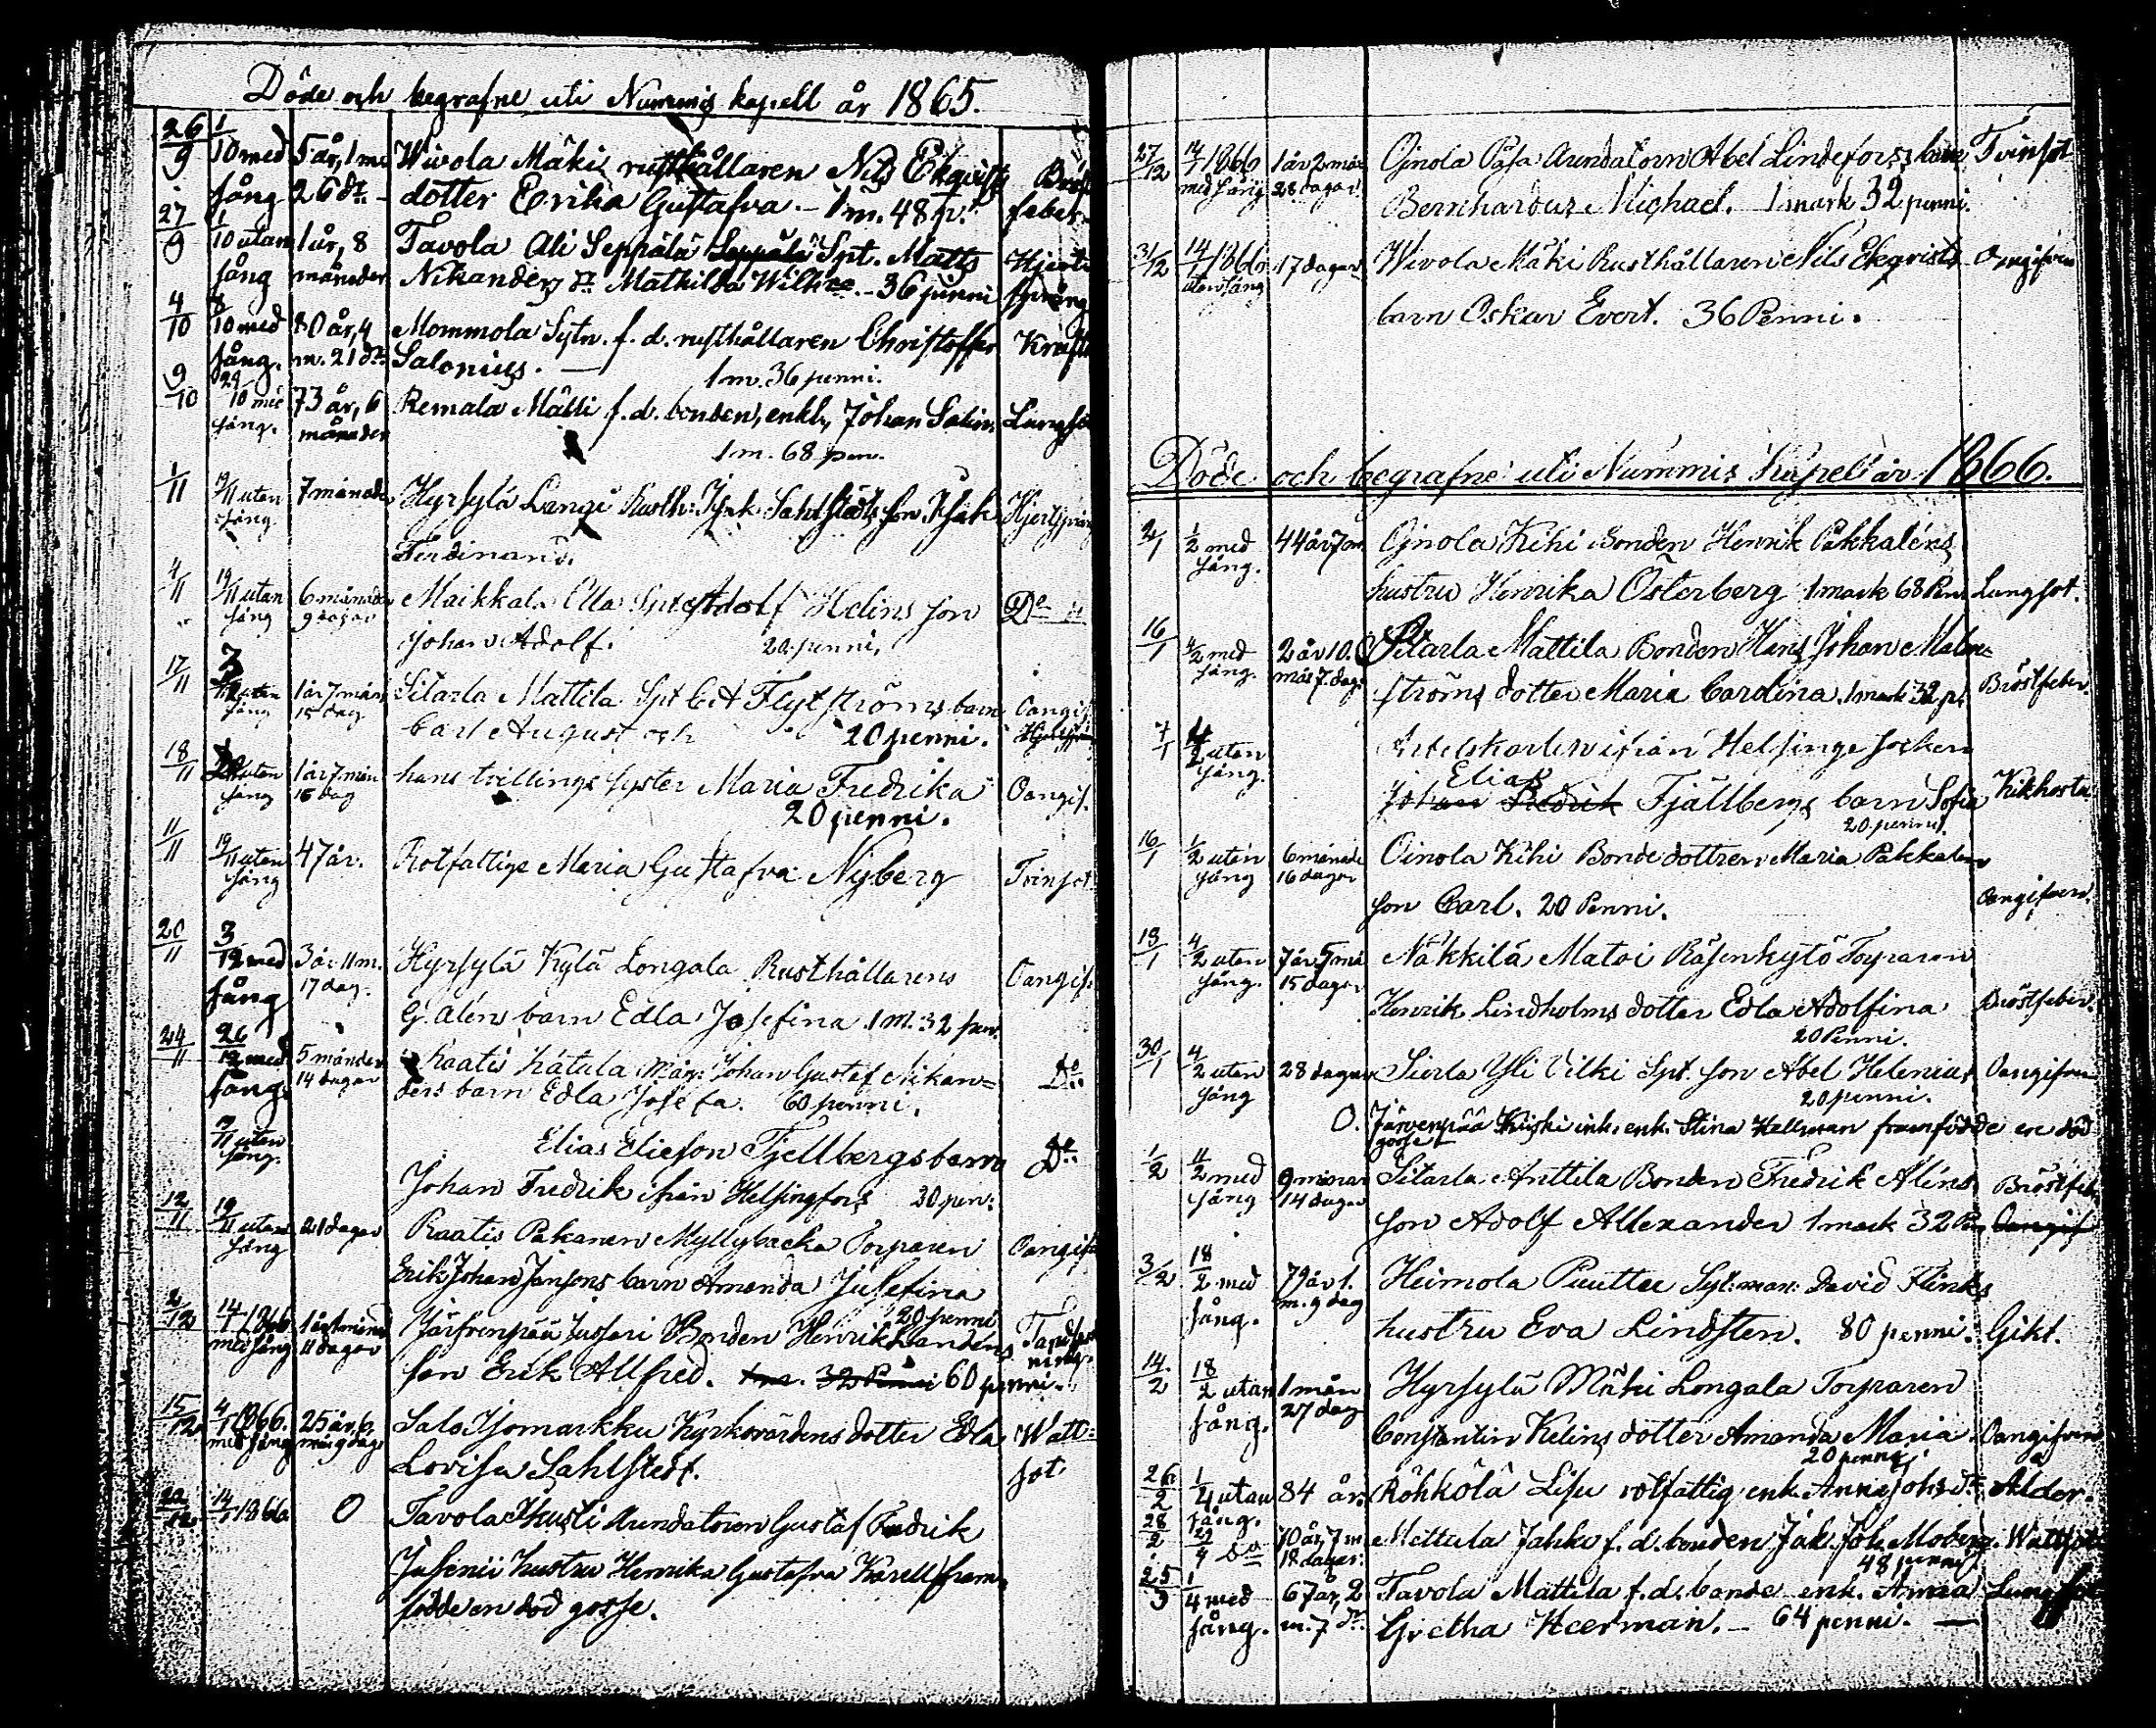 Döde och begrafne uti Nummis kapell år 1865.
26/9 1/10 med 5 år, 1 m Wivola Mäki rusthållaren Nils Ekqvists
sång 26 dr. dotter Erika Gustafva. - 1 m. 48 p. feber
27/9 1/10 utan 1 år, 8 Tavola Ali Seppälä Seppälä Spt. Matts Hjert
sång månader Nikanders dr Mathilda Wilh:a. - 36 penni språng
4/10 8/10 med 80 år, 4 Mommola Sytn. f. d. rusthållaren Christoffer
sång. m. 21 dr. Salonius. — 1 m. 36 penni.
9/10 29/10 med 73 år, 6 Remala Mätti f. d. bonden, enkl., Johan Salin. Lungso
sång. månader 1 m. 68 pen.
1/11 19/11 utan 7 månader Hyrsylä Langi Rusth: Isak Sahlstedts son Isak Hjertsprån
sång Ferdinand.
4/11 19/11 utan 6 månader Maikkala Olla Spt Adolf Helins son Do
sång 9 dagar Johan Adolf. 20 penni,
17/11 utan 1 år 7 mån Sitarla Mattila Spt C A Flytströms barn Oangif
sång 15 dag Carl August och 20 penni.
18/11 utan 1 år 7 mån hans tvillings syster Maria Fredrika Oangif.
sång 16 dag 20 penni.
11/11 19/11 utan 47 år. Rotfattige Maria Gustafva Nyberg Tvinsot
sång
20/11 3/12 med 3 år 11 m. Hyrsylä Kylä Longala Rusthållarens Oangif.
sång 17 dag. G. Alens barn Edla Josefina. 1 M. 32 pen.
24/11 26/12 med 5 månder Raatis Katala Måg: Johan Gustaf Nikan= Do
sång. 14 dagar ders barn Edla Josefa. 60 penni.
19/11 utan Elias Elieson Fjellbergs barn Do
sång. Johan Fredrik från Helsingfors 30 pen:
12/11 19/11 utan 21 dagar Raatis Pakanen Myllybacka Torparen Oangif
sång Erik Johan Jansons barn Amanda Josefina
20 penni
2/12 14/1 1866 Järfvenpää Jussari Bonden Henrik Landéns
med sång 11 dagar son Erik Alfred. 1 m. 32 Penni 60 penni.
15/12 4/1 1866. 25 år, 6, Salo Isomarkku Kyrkovärdens dotter Edla Watt=
med sång mån 9 dag Lovisa Sahlstedt. sot
14/1 1866 0 Tavola Ikusti Arrendatoren Gustaf Fredrik
Jusenii hustru Henrika Gustafva Karell fram=
födde en död gosse.
27/12 14/1 1866 1 år 2 mån Ojnola Päsa Arrendatorn Abel Lindefors's barn Tvinsot
med sång 28 dagar Bernhardus Michael. 1 mark 32 penni.
31/12 14/1 1866 17 dagar Wivola Mäki Rusthållaren Nils Ekqvists Oangifven
utan sång barn Oskar Evert. 36 Penni.
Döde och begrafne uti Nummis Kapel år 1866.
2/1 1/2 med 44 år 7 m Ojnola Kihi Bonden Henrik Pakkaléns
sång. hustru Henrika Österberg 1 mark 68 Pen Lungsot.
16/1 4/2 med 2 år 10. Sitarla Mattila Bonden Hans Johan Malm=
sång. mån 7. dag. ströms dotter Maria Carolina. 1 mark 32 p. Bröstfeber.
7/1 4/2 utan Arbetskarlen ifrån Helsinge socken
sång. Elias
Johan Fredrik Fjällbergs barn Sofia Kikhosta
20 penni.
16/1 1/2 utan 6 månade Oinola Kihi Bondedottren Maria Pakkalen
sång 16 dagar son Carl. 20 Penni. Oangifven.
13/1 4/2 utan 7 år, 5 må Näkkilä Matoi Räsenkytö Torparen
sång. 15 dagar Henrik Lindholms dotter Edla Adolfina Bröstfeber.
20 Penni.
30/1 4/2 utan 28 dagar Sierla Yli Vilki Spt. son Abel Helenius Oangifven
sång 20 penni.
0. Järvenpää Kuiski inh. enk. Stina Hellman framfödde en död
gosse
1/2 11/2 med 9 månar Sitarla Anttila Bonden Fredrik Aléns Bröstfeb
sång 14 dagar son Adolf Allexander 1 mark 32 Pen Oangif
3/2 18/2 med 79 år 1. Heimola Puuttu Syt:man: David Flinks
sång. m. 9 dag hustru Eva Lindsten. 80 penni. Gikt.
14/2 18/2 utan 1 mån Hyrsylä Mäki Longala Torparen
sång. 27 dag Constantin Kelins dotter Amanda Maria Oangifven
20 penni
26/2 1/4 utan 84 år Röhkölä Lisu rotfattig enk. Anna Johsdr Ålder.
sång.
28/2 70 år, 7 m Mettula Jahku f. d. bonden Jak. Joh. Moberg. Wattsot
18 dagar. 48 penni
25/3 1/4 med 67 år, 2 Tavola Mattila f. d. bonde enk. Anna Lungsot
sång. m. 7 dr. Gretha Heerman. — 64 penni. —